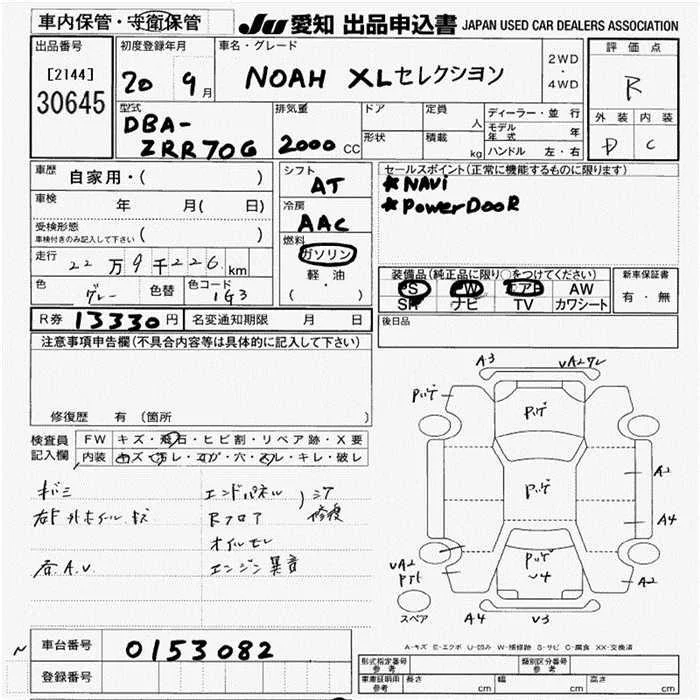 車内保管・守衛保管
JU 愛知 出品申込書 JAPAN USED CAR DEALERS ASSOCIATION
出品番号
[2144]
30645
初度登録年月
20 9月
車名・グレード
NOAH XLセレクション
2WD
・
4WD
評価点
R
外装 内装
D C
型式
DBA-
ZRR70G
排気量
2000 CC
ドア
形状
定員
人
積載
kg
ディーラー・並行
モデル年式 年
ハンドル 左・右
車歴
自家用・( )
車検
年 月( 日)
受検形態
車検付きのみ記入して下さい ( )
走行
22万9千226km
色
グレー
色替
色コード
1G3
シフト
AT
冷房
AAC
燃料
ガソリン
軽油
( ・ )
セールスポイント(正常に機能するものに限ります)
*NAVi
*PowerDooR
装備品(純正品に限り○をつけてください)
PS PW エアB AW
SR ナビ TV カワシート
新車保証書
有・無
R券 13330円
名変通知期限 月 日
後日品
注意事項申告欄(不具合内容等は具体的に記入して下さい)
修復歴 有(箇所 )
検査員
記入欄
FW キズ・飛石・ヒビ割・リペア跡・X要
内装 キズ・汚レ・コゲ・穴・スレ・キレ・破レ
キバミ
右F外ホイルキズ
香.A.V.
エンドパネル
Rフロア
シワ
修復
オイルモレ
エンジン異音
A3
UA2サレ
Pハゲ
Pハゲ
Pハゲ
Pハゲ
U4
A2
A4
A2
UA2
スペア
A4
U3
A-キズ E-エクボ U-凹み W-補修跡 S-サビ C-腐食 XX-交換済
車台番号
0153082
登録番号
型式指定番号
参考
類別区分番号
参考
車庫証明用
参考
長さ cm
幅 cm
高さ cm